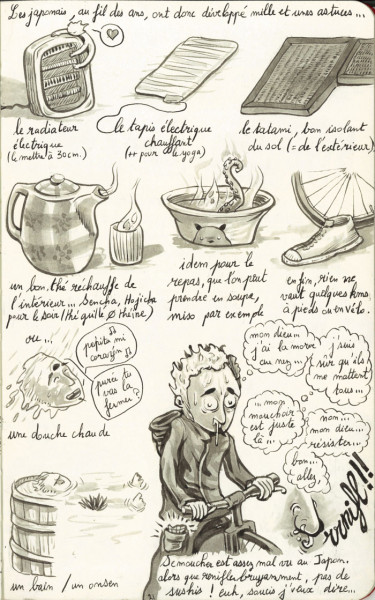 Les japonais, au fil des ans, ont donc développé mille et unes astuces...
le radiateur
électrique
(le mettre à 30cm.)
le tapis électrique
chauffant
(++ pour le yoga)
le tatami, bon isolant
du sol (= de l'extérieur)
un bon thé réchauffe de
l'intérieur... Sencha, Hojicha
pour le soir (thé grillé ∅ théine)
idem pour le
repas, que l'on peut
prendre en soupe,
miso par exemple
enfin, rien ne
vaut quelques kms
à pieds ou en vélo.
ou...
pepita mi
corazón
purée tu
vas la
fermer?
une douche chaude
mon dieu...
j'ai la morve
au nez...
j'suis
sûr qu'ils
me mattent
tous...
... mon
mouchoir
est juste
là...
non...
mon dieu...
résister...
bon...
allez,
un bain / un onsen
Se moucher est assez mal vu au Japon.
alors que renifler bruyamment, pas de
sushis ! euh, soucis j'veux dire...